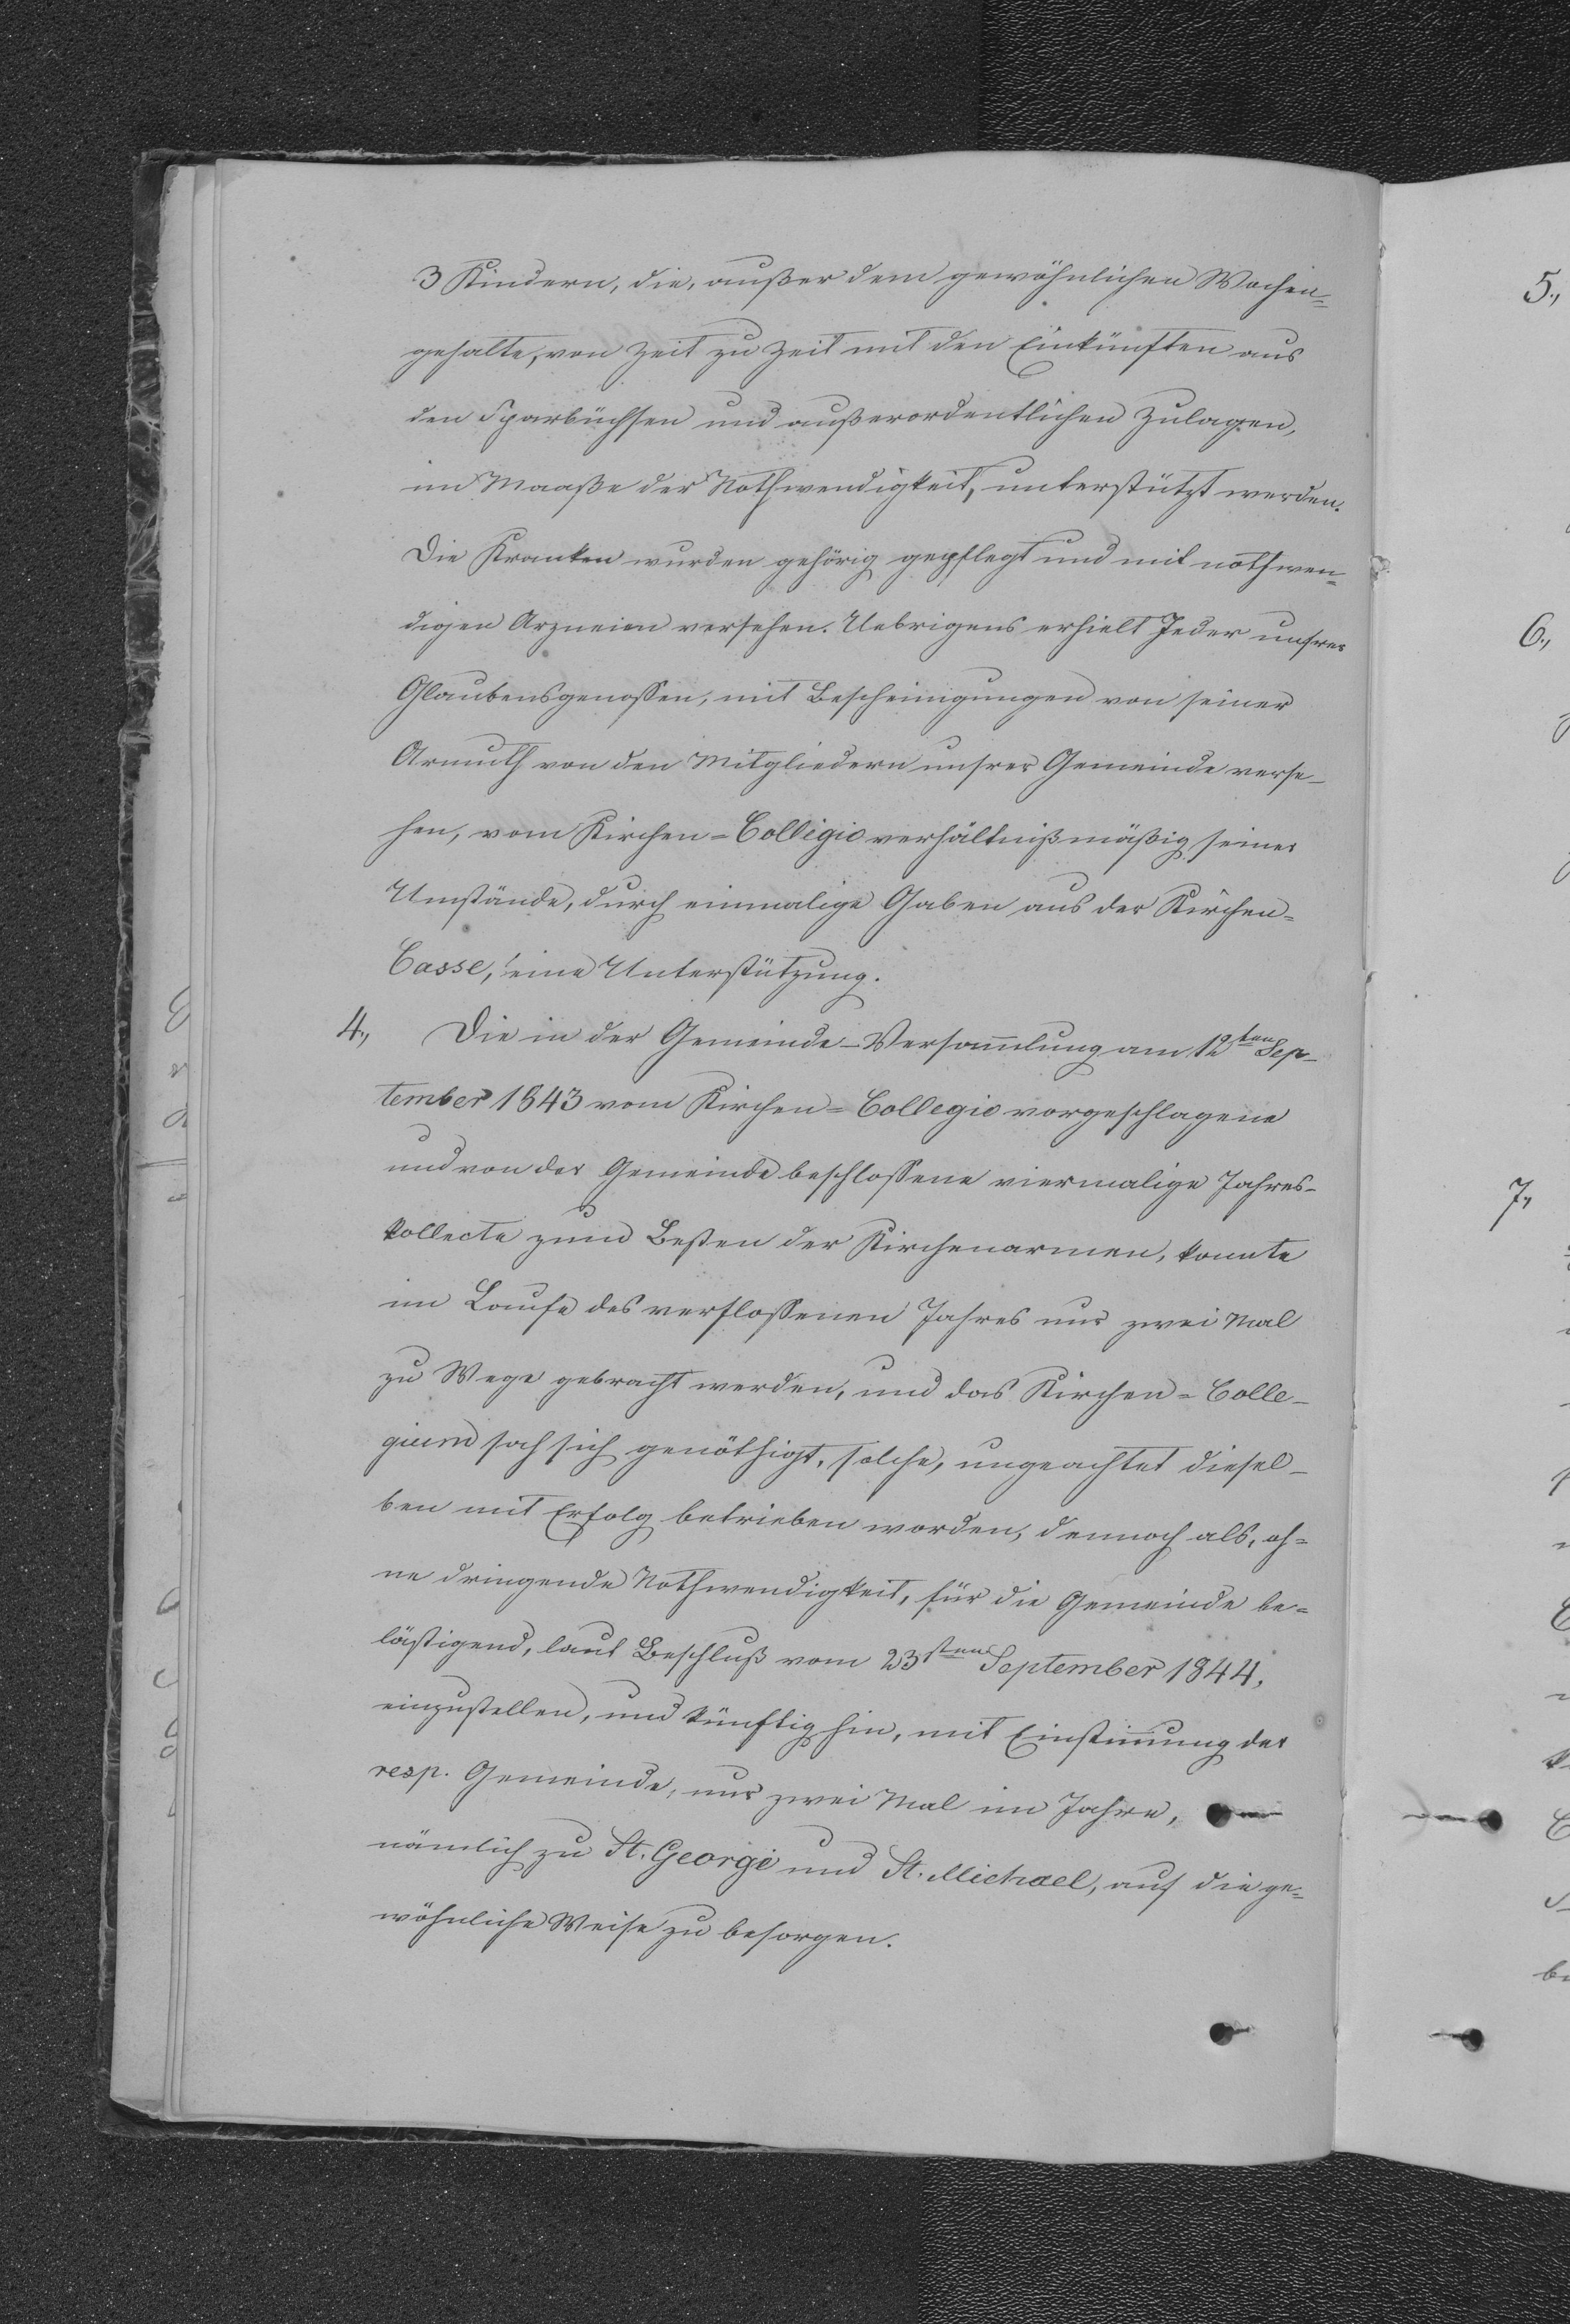 3 Kindern, die, außer dem gewöhnlichen Wochen=
gehalte, von Zeit zu Zeit mit den Einkünften aus
den Sparbüchsen und außerordentlichen Zulagen,
im Maaße der Nothwendigkeit, unterstützt werden.
Die Kranken wurden gehörig gepflegt und mit nothwen=
digen Arzneien versehen. Uebrigens erhielt Jeder unsrer
Glaubensgenossen, mit Bescheinigungen von seiner
Armuth von den Mitgliedern unsrer Gemeinde verse-
hen, vom Kirchen=Collegio verhältnißmäßig seiner
Umstände, durch einmalige Gaben aus der Kirchen=
Casse, eine Unterstützung.
4., Die in der Gemeinde-Versammlung am 12ten Sep-
tember 1843 vom Kirchen=Collegio vorgeschlagene
und von der Gemeinde beschlossene viermalige Jahres-
kollecte zum Besten der Kirchenarmen, konnte
im Laufe des verflossenen Jahres nur zwei Mal
zu Wege gebracht werden, und das Kirchen=Colle-
gium sah sich genöthigt, solche, ungeachtet diesel-
ben mit Erfolg betrieben worden, dennoch als, oh=
ne dringende Nothwendigkeit, für die Gemeinde be=
lästigend, laut Beschluß vom 23sten September 1844,
einzustellen, und künftig hin, mit Einstimmung der
resp. Gemeinde, nur zwei Mal im Jahre,
nämlich zu St. Georgi und St. Michael, auf die ge=
wöhnliche Weise zu besorgen.
5.,
6.,
7.,